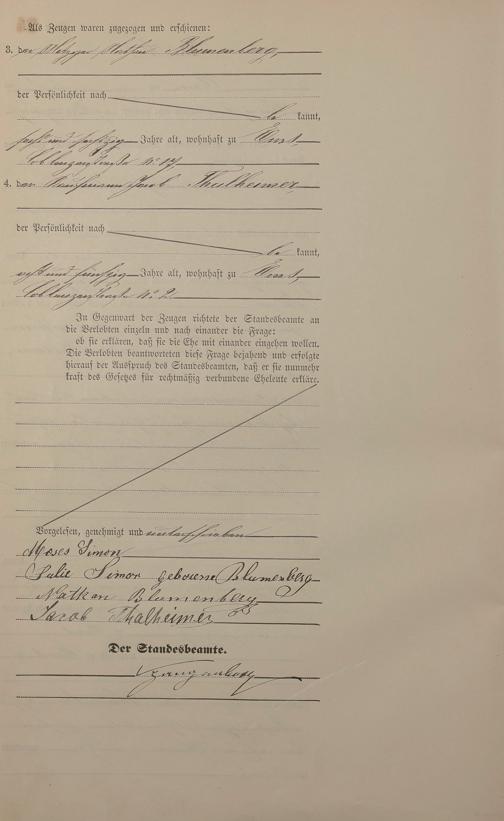 Als Zeugen waren zugezogen und erschienen:
3. der Metzger Nathan Blumenberg,
der Persönlichkeit nach
be kannt,
sechzig Jahre alt, wohnhaft zu Ems
Coblenzerstraße N: 17
4. der Kaufmann Jacob Thalheimer,
der Persönlichkeit nach
be kannt,
acht und fünfzig Jahre alt, wohnhaft zu Ems,
Coblenzerstraße N: 2.
In Gegenwart der Zeugen richtete der Standesbeamte an
die Verlobten einzeln und nach einander die Frage:
ob sie erklären, daß sie die Ehe mit einander eingehen wollen.
Die Verlobten beantworteten diese Frage bejahend und erfolgte
hierauf der Ausspruch des Standesbeamten, daß er sie nunmehr
kraft des Gesetzes für rechtmäßig verbundene Eheleute erkläre.
Vorgelesen, genehmigt und unterschrieben
Moses Simon
Julie Simon geborene Blumenberg
Nathan Blumenberg
Jacob Thalheimer
Der Standesbeamte.